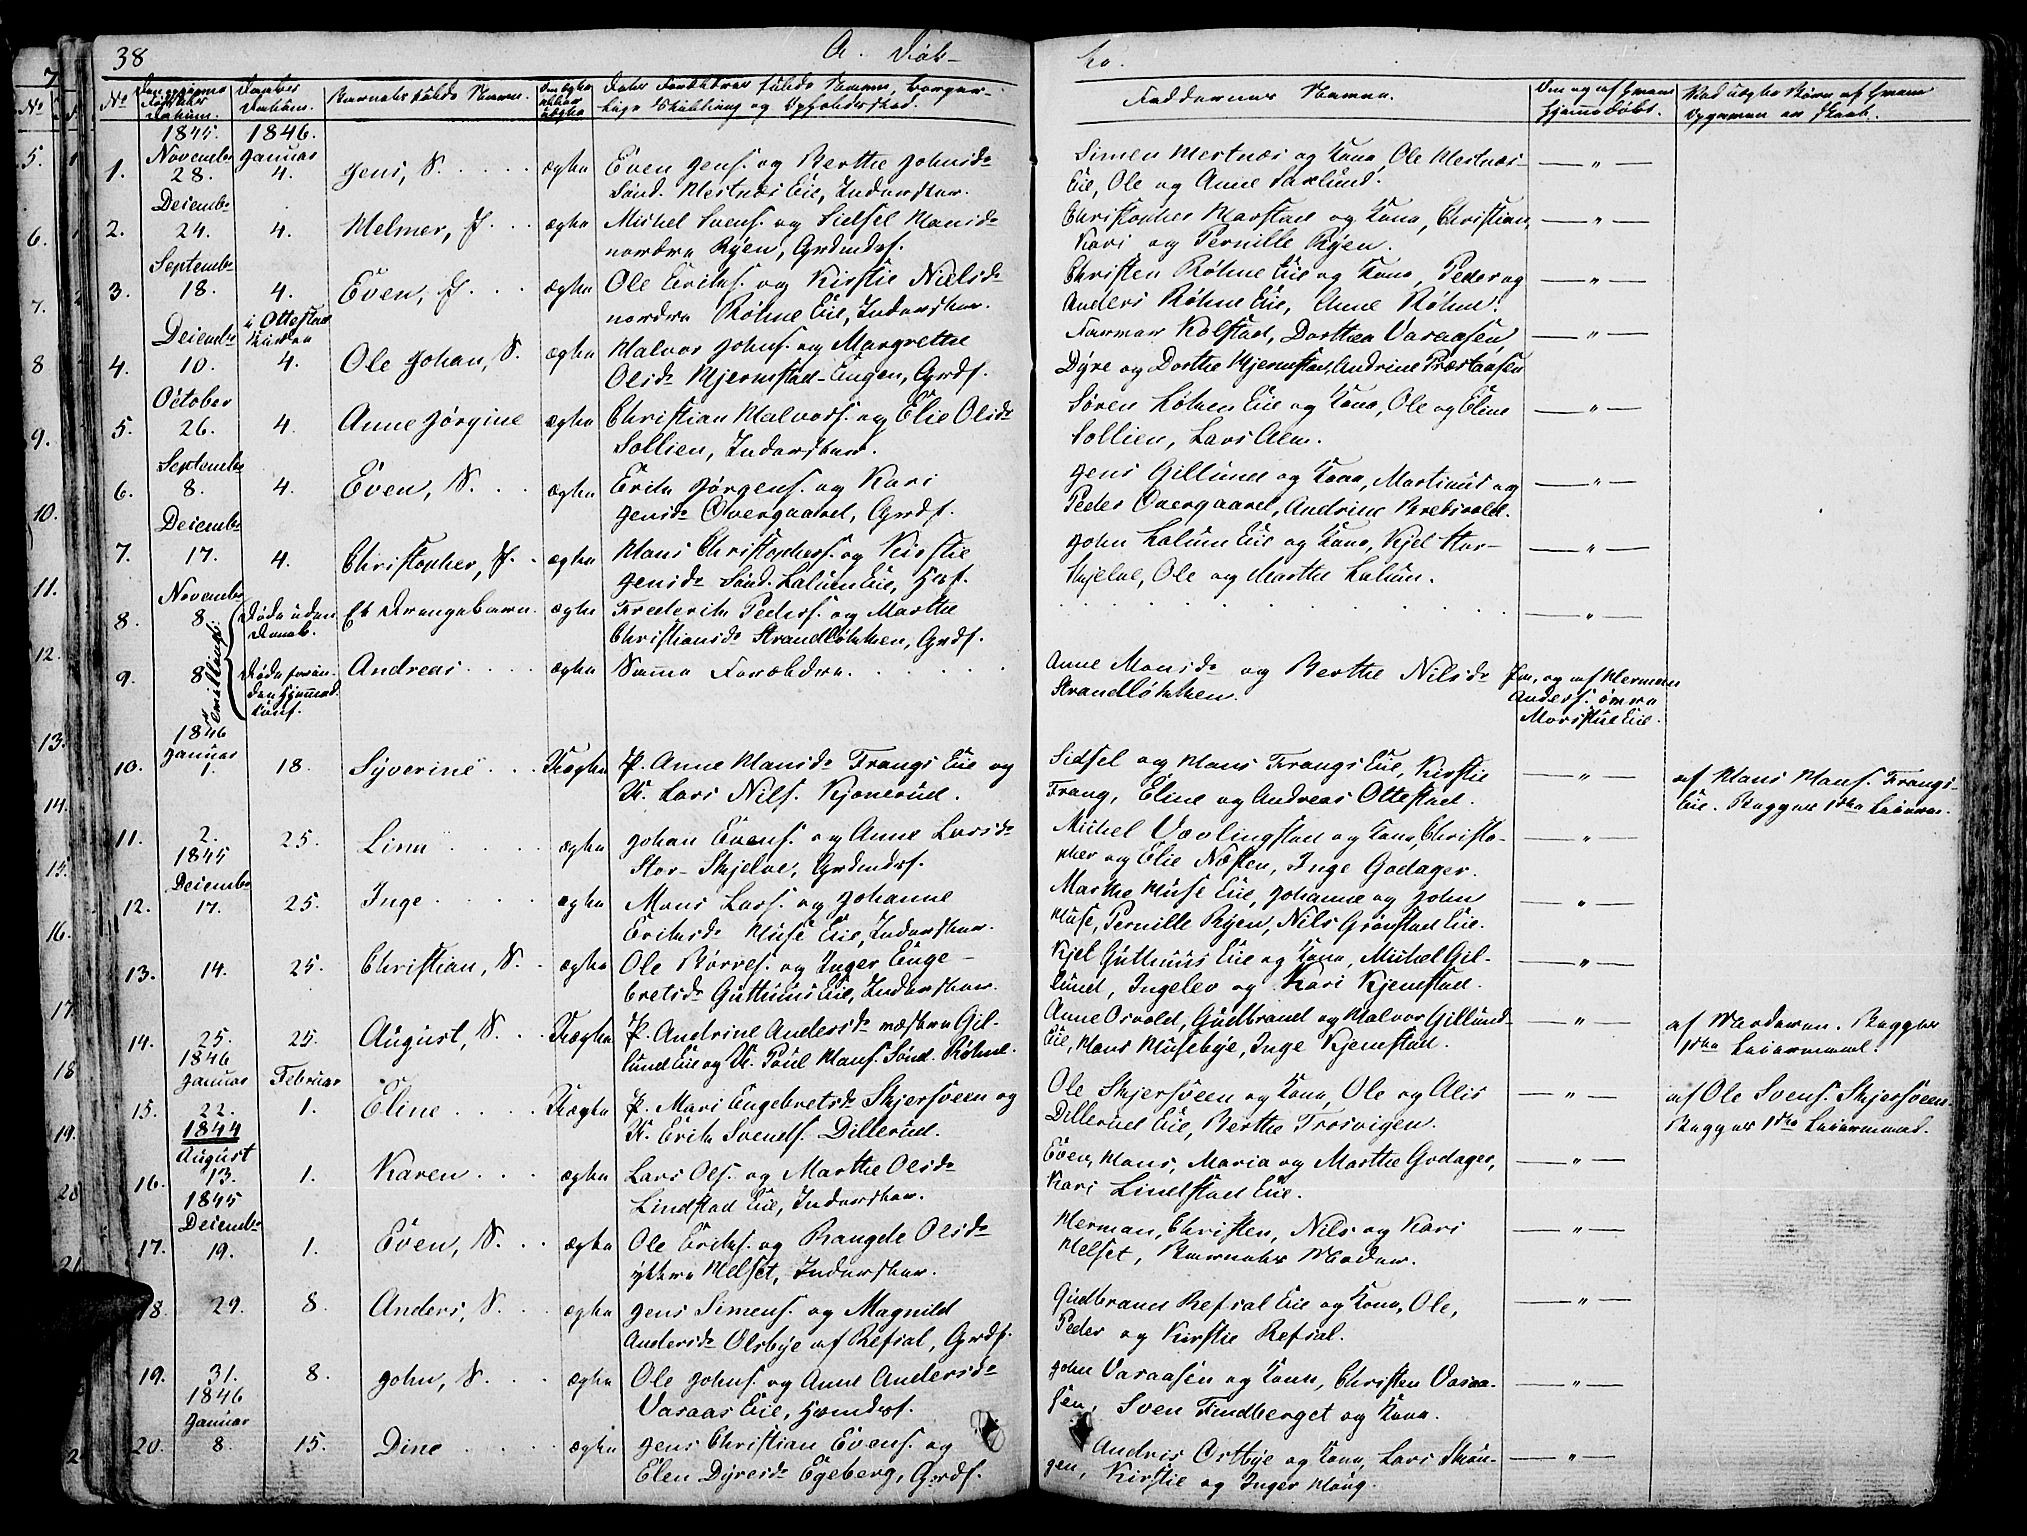 38
A. Døb-
te.
No
Den opgivne Fødsels Datum.
Daabens Datum.
Barnets fulde Navn.
Om ægte eller uægte
Dets Forældres fulde Navne, borger-
lige Stilling og Opholdssted.
Faddernes Navne.
Om og af hvem
hjemmedøbt.
Ved uægte Børn af hvem
Opgaven er skeet.
1845 1846.
November Januar
1. 28. 4. Jens, S. ægte Even Jens. og Berthe Johnsdr
Sønd. Mestnæs Eie, Inderster.
Simen Mestnæs og Kone, Ole Mestnæs
Eie, Ole og Anne Saxlund. — " —
Decembr
2. 24. 4. Helmer, F. ægte Michel Svens. og Sidsel Hansdr
nordre Ryen, Grdmdsf.
Christopher Harstad og Kone, Christian,
Kari og Pernille Ryen. — " —
Septembr
3. 18. 4. Even, F. ægte Ole Eriks. og Kirstie Nielsdr
nordre Røhne Eie, Inderster.
Christen Røhne Eie og Kone, Peder og
Anders Røhne Eie, Anne Røhne. — " —
Decembr i Ottestad Kirke
4. 10. 4. Ole Johan, S. ægte Halvor Johns. og Margrethe
Olsdr Hjermstad-Engen, Grdf.
Farmor Kolstad, Dorthea Vasaasen,
Dyre og Dorthe Hjermstad, Andrine Præstaasen — " —
October
5. 26. 4. Anne Jørgine ægte Christian Halvors. og Elie Olsdr
Sollien, Inderster.
Søren Løken Eie og Kone, Ole og Eline
Sollien, Lars Alm. — " —
Septembr
6. 8. 4. Even, S. ægte Erik Jørgens. og Kari
Jensdr Overgaard, Grdf.
Jens Gillund og Kone, Martinus og
Peder Overgaard, Andrine Brebsvold. — " —
Decembr
7. 17. 4. Christopher, F. ægte Hans Christophers. og Kirstie
Jensdr Sønd. Lalum Eie, Hsf.
John Lalum Eie og Kone, Kjel Stor-
Skjelve, Ole og Marthe Lalum. — " —
November
8. 8. Døde uden Daab. Et Drengebarn. ægte Frederik Peders. og Marthe
Christiansdr Strandløkken, Grdf. — " —
9. 8. Tvillinger Døde førin- den Hjemmed. Conf. Andreas ægte Samme Forældre.
Anne Monsdr og Berthe Nilsdr
Strandløkken.
Ja, og af Herman
Anders. øvre
Morstue Eie.
1846
Januar
10. 1. 18. Syverine Uægte P. Anne Hansdr Frangs Eie og
U. Lars Nils. Kjonerud.
Sidsel og Hans Frangs Eie, Kirstie
Frang, Eline og Andreas Ottestad. — " —
af Hans Hans. Frangs-
Eie. Begges 1ste Leierm.
11. 2. 25. Lina ægte Johan Evens. og Anne Larsdr
Stor-Skjelve, Grdmdsf.
Michel Vævlingstad og Kone, Christo-
pher og Elie Næsten, Inge Godager. — " —
1845
Decembr
12. 17. 25. Inge ægte Mons Lars. og Johanne
Eriksdr Huse Eie, Inderster.
Marthe Huse Eie, Johanne og John
Huse, Pernille Ryen, Nils Grønstad Eie. — " —
13. 14. 25. Christian, S. ægte Ole Børres. og Inger Enge-
bretsdr Guthuus Eie, Inderster.
Kjel Guthuus Eie og Kone, Michel Gil-
lund, Ingelev og Kari Kjemstad. — " —
14. 25. 25. August, S. Uægte P. Andrine Andersdr nedstre Gil-
lund Eie og U. Poul Hans. Sønd. Røhne.
Anne Osvold, Gudbrand og Halvor Gillund-
Eie, Hans Musebye, Inge Kjemstad. — " —
af Moderen. Begges
1ste Leiermaal.
1846
Januar Februar
15. 22. 1. Eline Uægte P. Mari Engebretsdr Skjersøeen og
U. Erik Svends. Dillerud.
Ole Skjersøeen og Kone, Ole og Alis
Dillerud Eie, Berthe Trosvigen. — " —
af Ole Svens. Skjersøeen.
Begges 1ste Leiermaal.
1844
August
16. 13. 1. Karen ægte Lars Ols. og Marthe Olsdr
Lindstad Eie, Inderster.
Even, Hans, Maria og Marthe Godager,
Kari Lindstad Eie. — " —
1845
Decembr
17. 19. 1. Even, S. ægte Ole Eriks. og Rangde Olsdr
yttre Helset, Inderster.
Herman, Christen, Nils og Kari
Helset, Barnets Moder. — " —
18. 29. 8. Anders, S. ægte Jens Simens. og Magnild
Andersdr Olsbye af Refsal, Grdf.
Gudbrand Refsal Eie og Kone, Ole,
Peder og Kirstie Refsal. — " —
19. 31. 8. John, S. ægte Ole Johns. og Anne Andersdr
Vasaas Eie, Hsmdsf.
John Vasaasen og Kone, Christen Vasaa-
sen, Sven Findberget og Kone. — " —
1846
Januar
20. 8. 15. Dine ægte Jens Christian Evens. og
Elen Dyresdr Egeberg, Grdf.
Andris Ostbye og Kone, Lars Skøn-
gen, Kirstie og Inger Haug. — " —